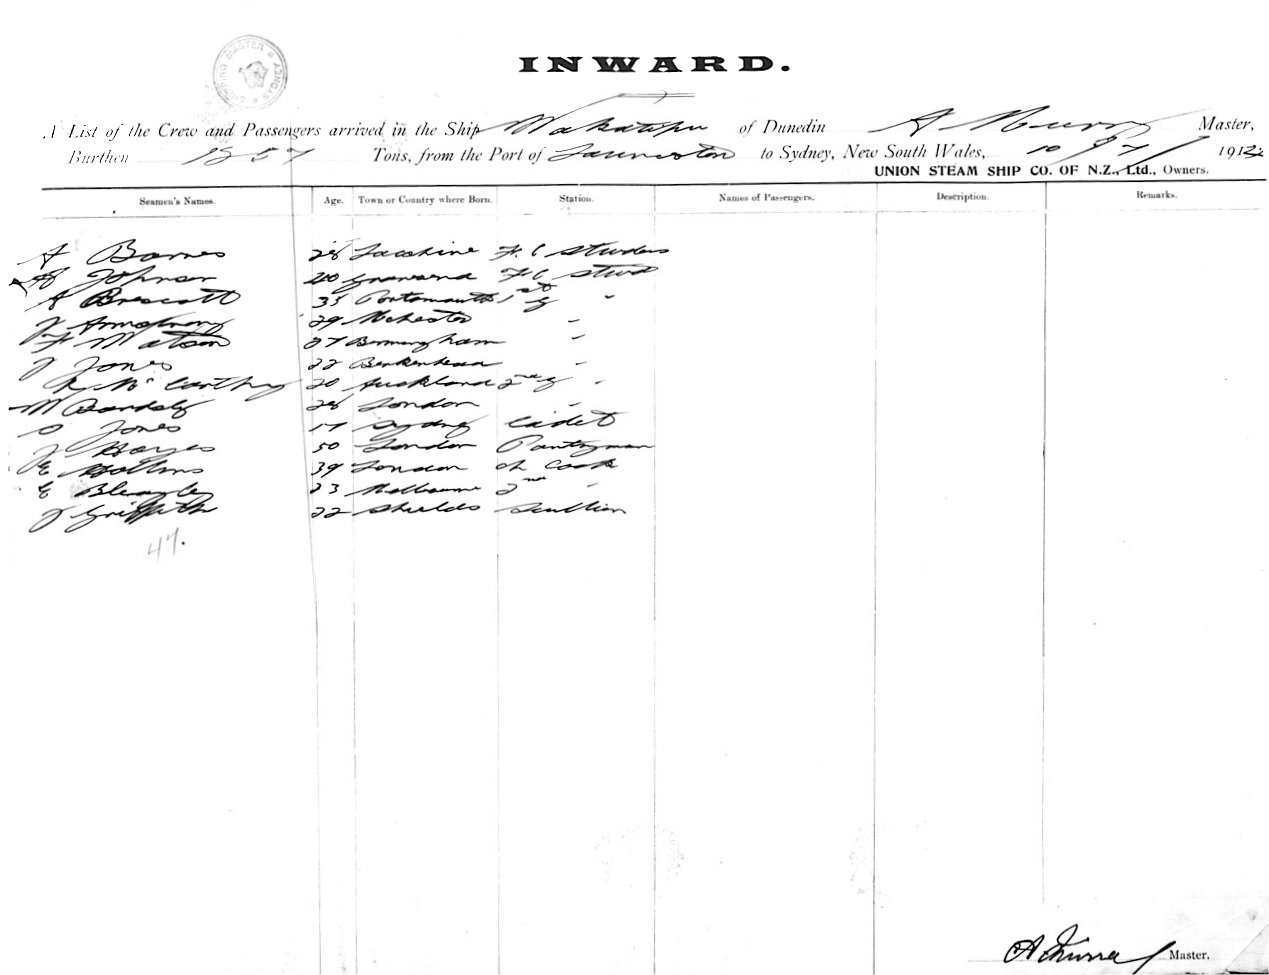 SHIPPING MASTER SYDNEY
INWARD.
A List of the Crew and Passengers arrived in the Ship Wakatipu of Dunedin A Murray Master,
Burthen 1257 Tons, from the Port of Launceston to Sydney, New South Wales, 10/7/1912
UNION STEAM SHIP CO. OF N.Z., Ltd., Owners.
Seamen's Names. Age. Town or Country where Born. Station. Names of Passengers. Description. Remarks.
A Barnes 28 F. C Steward
A Johnson 40 Gravesend F C Stwd
A Prescott 35 Portsmouth 1st "
J Armstrong 29 "
F Watson 27 Birmingham "
J Jones 22 Berkenhead "
R McCarthy 20 Auckland 2nd "
M 28 London "
O Jones 17 Sydney Cadet
J Hayes 50 London Pantryman
E Hollins 39 London Ch Cook
E 23 Melbourne 2nd "
J Griffith 22 Shields Scullion
47.
A Murray Master.